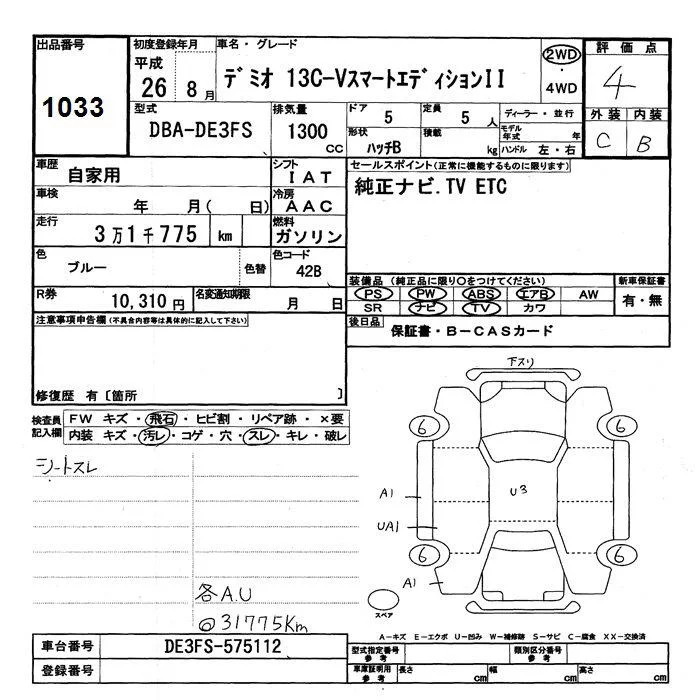 出品番号 1033
初度登録年月 平成 26 8月
車名・グレード デミオ 13C-Vスマートエディション II
2WD
4WD
評価点 4
外装 C 内装 B
型式 DBA-DE3FS
排気量 1300 CC
ドア 5 定員 5 人
形状 ハッチB 積載 kg
ディーラー・並行
モデル年式 年
ハンドル 左・右
車歴 自家用
シフト I A T
車検 年 月( 日)
冷房 A A C
走行 3万1千775 km
燃料 ガソリン
色 ブルー 色替
色コード 42B
R券 10,310円
名変通知期限 月 日
セールスポイント(正常に機能するものに限ります)
純正ナビ.TV ETC
装備品(純正品に限り○をつけてください)
PS PW ABS エアB AW
SR ナビ TV カワ
新車保証書 有・無
後日品 保証書・B-CASカード
注意事項申告欄(不具合内容等は具体的に記入して下さい)
修復歴 有〔箇所 〕
検査員記入欄
FW キズ・飛石・ヒビ割・リペア跡・×要
内装 キズ・汚レ・コゲ・穴・スレ・キレ・破レ
シートスレ
各A.U
@31775Km
下スリ
6 6
A1 U3
UA1
6 6
A1
スペア
A-キズ E-エクボ U-凹み W-補修跡 S-サビ C-腐食 XX-交換済
車台番号 DE3FS-575112
登録番号
型式指定番号 参考
類別区分番号 参考
車庫証明用 参考 長さ cm 幅 cm 高さ cm